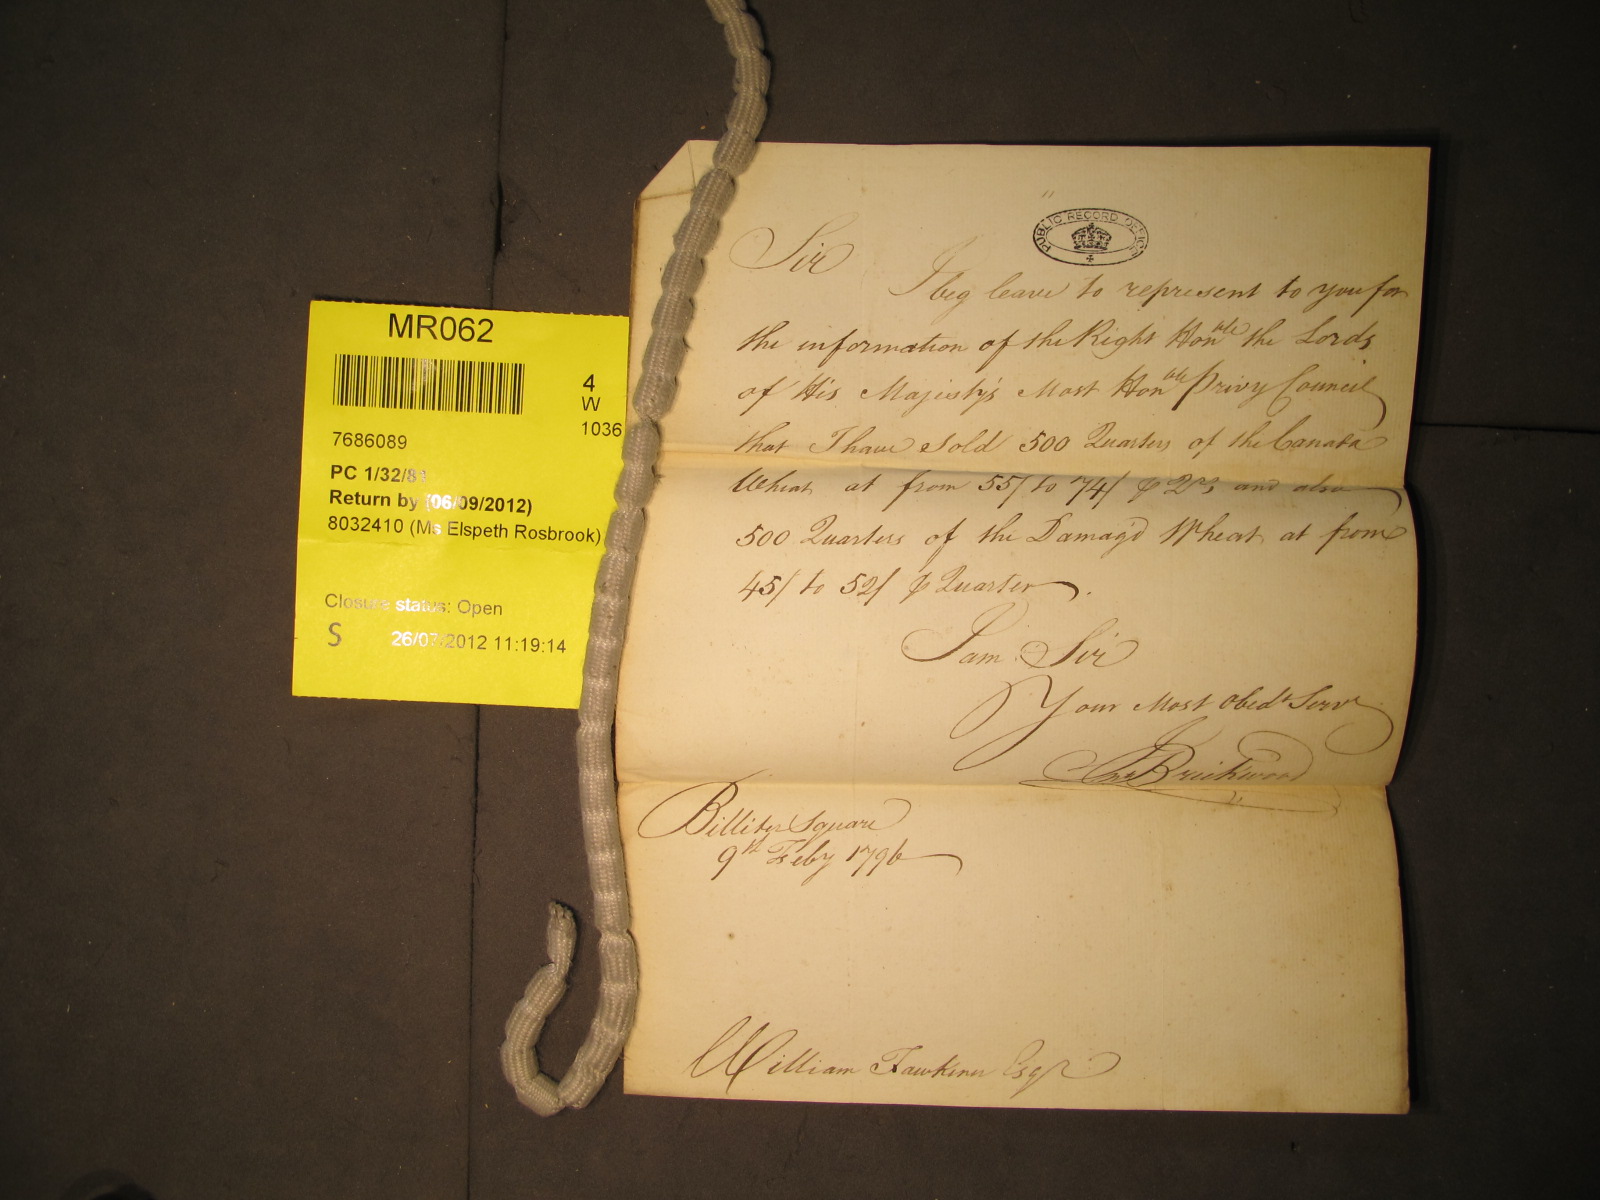 MR062
4
W
1036
7686089
PC 1/32/81
Return by (06/09/2012)
8032410 (Ms Elspeth Rosbrook)
Closure status: Open
S 26/07/2012 11:19:14
PUBLIC RECORD OFFICE
Sir
I beg leave to represent to you for
the information of the Right Honble the Lords
of His Majesty's Most Honble Privy Council
that I have Sold 500 Quarters of the Canada
Wheat at from 55/ to 74/ ⅌ Qrs, and also
500 Quarters of the Damag'd Wheat at from
45/ to 52/ ⅌ Quarter.
I am Sir
Your Most Obedt Servt
Jno Brickwood
Billiter Square
9th Feby 1796
William Fawkener Esqr